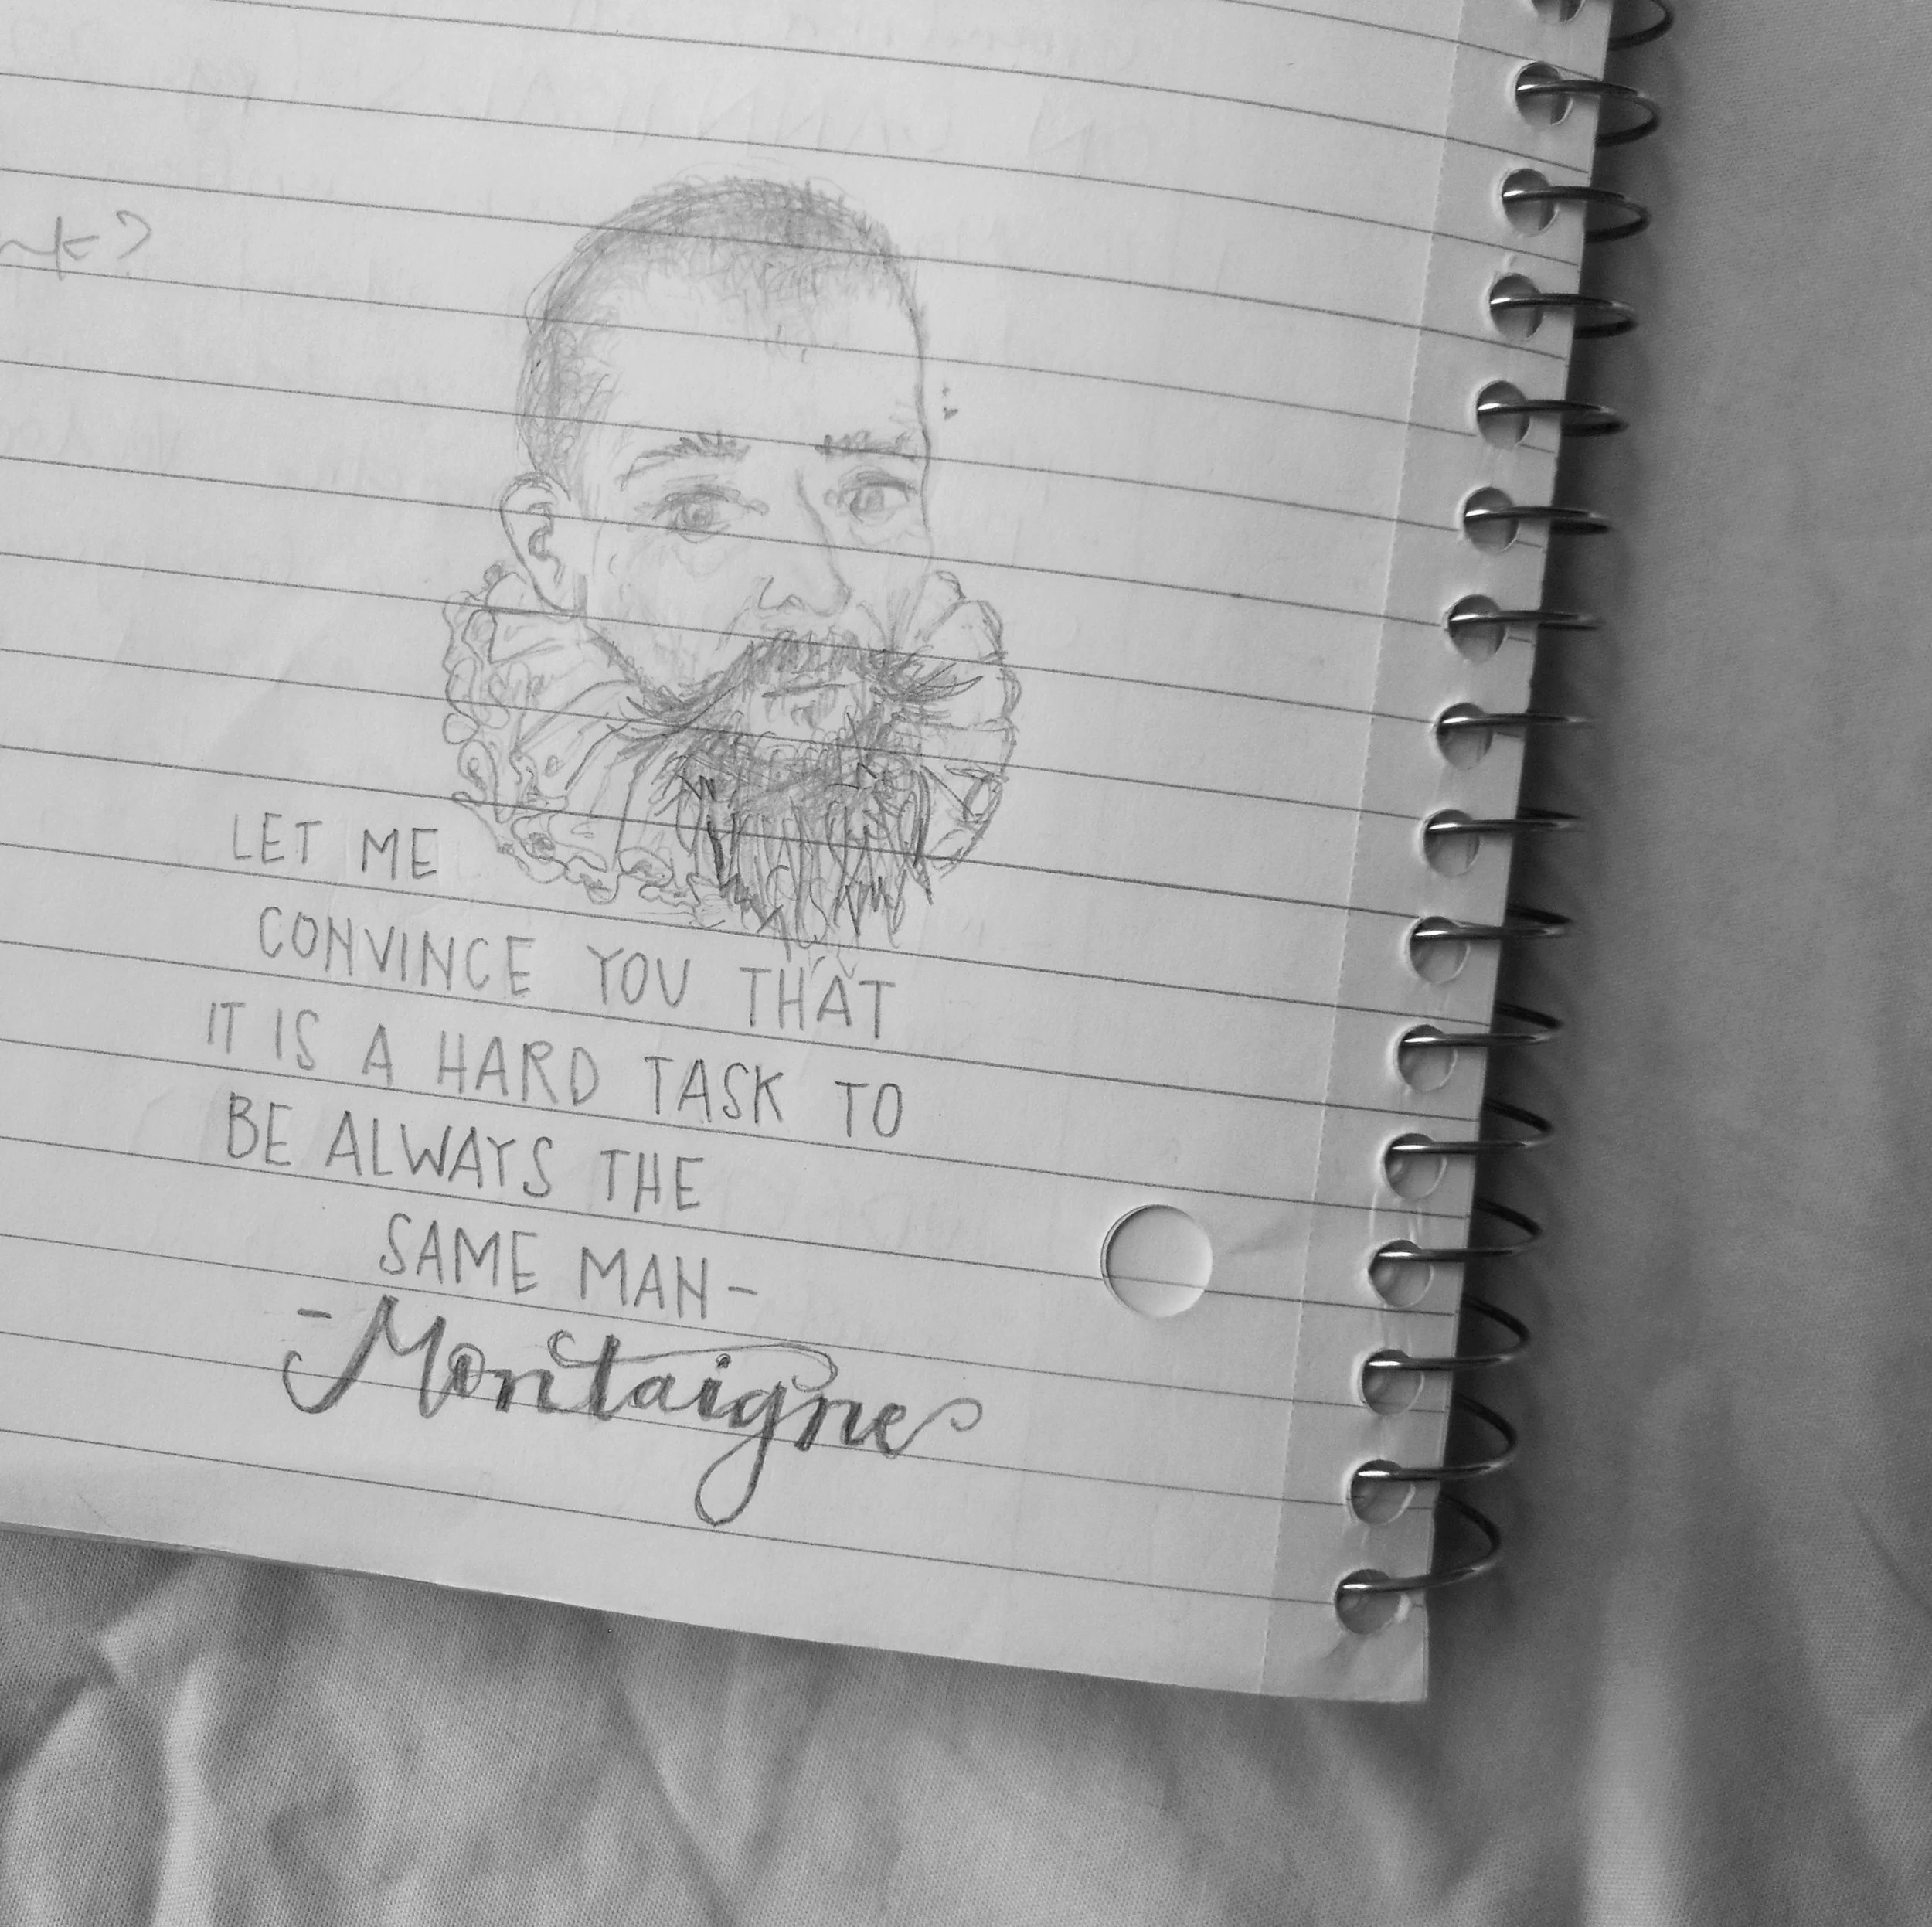 LET ME
CONVINCE YOU THAT
IT IS A HARD TASK TO
BE ALWAYS THE
SAME MAN-
-Montaigne